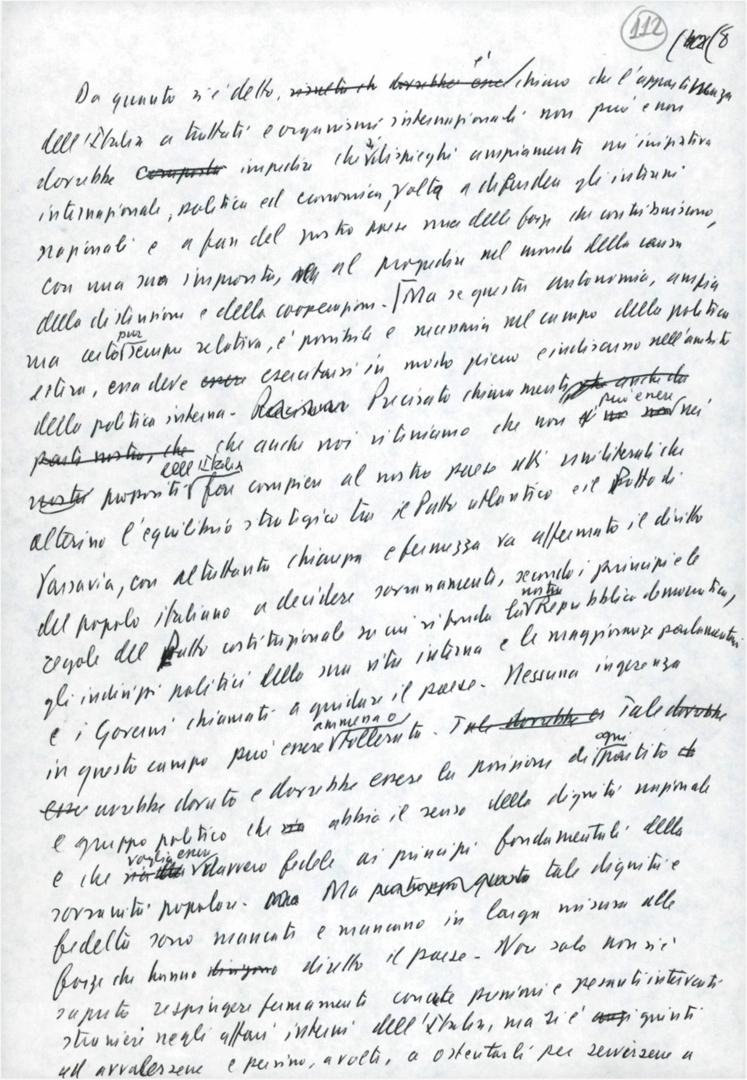 112
Da quanto si è detto, risulta ch dovrebbe esse è chiaro che l'appartenenza
dell'Italia a trattati e organismi internazionali non può e non
dovrebbe comporta impedire che si dispieghi ampiamente un'iniziativa
internazionale, politica ed economica, volta a difendere gli interessi
nazionali e a fare del nostro paese una delle forze che contribuiscono,
con una sua impronta, al progredire nel mondo della causa
della distensione e della cooperazione. Ma se questa autonomia, ampia
ma certo pur sempre relativa, è possibile e necessaria nel campo della politica
estera, essa deve essere esercitarsi in modo pieno e indiscusso nell'ambito
della politica interna. Precisato chiaramente, anche da
parte nostra, che che anche noi riteniamo che non può essere nei
nostri propositi dell'Italia far compiere al nostro paese atti unilaterali che
alterino l'equilibrio strategico tra il Patto atlantico e il Patto di
Varsavia, con altrettanta chiarezza e fermezza va affermato il diritto
del popolo italiano a decidere sovranamente, secondo i principi e le
regole del Patto costituzionale su cui si fonda la nostra Repubblica democratica,
gli indirizzi politici della sua vita interna e le maggioranze parlamentari
e i Governi chiamati a guidare il paese. Nessuna ingerenza
in questo campo può essere ammessa o tollerata. Tale dovrebbe es Tale dovrebbe
esse avrebbe dovuto e dovrebbe essere la posizione di ogni partito ch
e gruppo politico che sia abbia il senso della dignità nazionale
e che voglia essere davvero fedele ai principi fondamentali della
sovranità popolare. Ma Ma purtroppo questa tale dignità e
fedeltà sono mancati e mancano in larga misura alle
forze che hanno dirigono diretto il paese. Non solo non si è
saputo respingere fermamente concrete pressioni e pesanti interventi
stranieri negli affari interni dell'Italia, ma si è anzi giunti
ad avvalersene e persino, a volte, a ostentarli per servirsene a